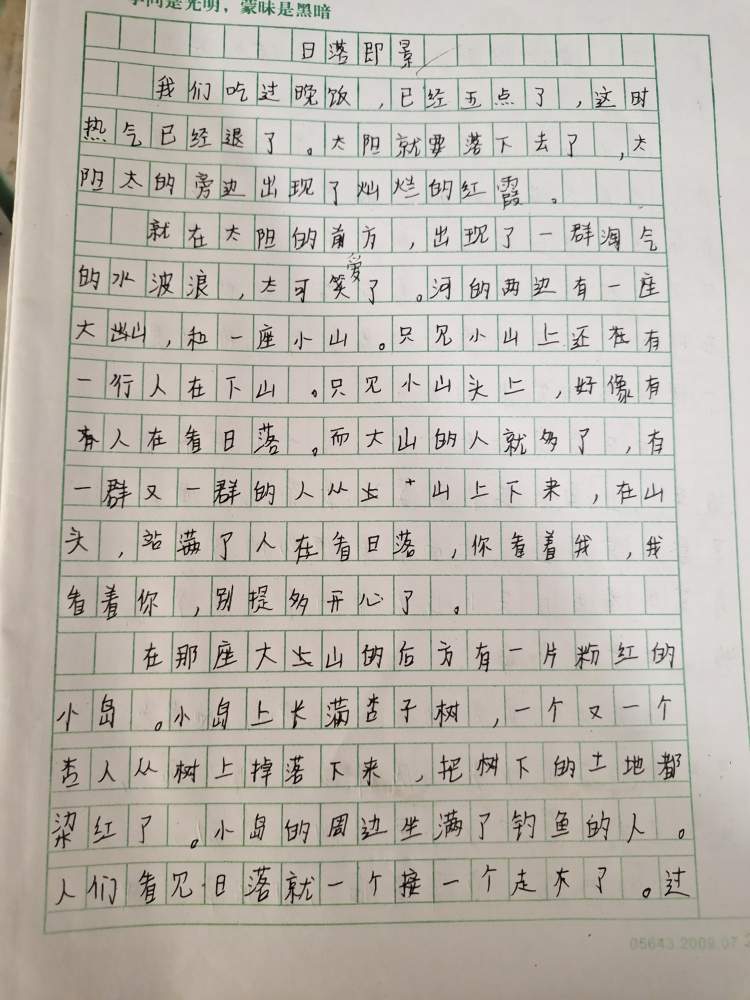 学问是光明，蒙昧是黑暗
日落即景
我们吃过晚饭，已经五点了，这时
热气已经退了。太阳就要落下去了，太
阳太的旁边出现了灿烂的红霞。
就在太阳的前方，出现了一群淘气
的水波浪，太可笑爱了。河的两边有一座
大山，和一座小山。只见小山上还在有
一行人在下山。只见小山头上，好像有
人在看日落。而大山的人就多了，有
一群又一群的人从山上下来，在山
头，站满了人在看日落，你看着我，我
看着你，别提多开心了。
在那座大山的后方有一片粉红的
小岛。小岛上长满杏子树，一个又一个
杏人从树上掉落下来，把树下的土地都
染红了。小岛的周边坐满了钓鱼的人。
人们看见日落就一个接一个走了。过
05643 2009.07